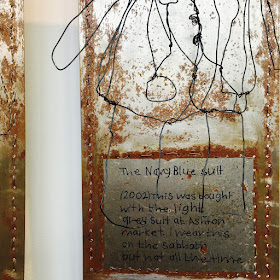 The Navy Blue Suit
(2002) This was bought
with the light
grey suit at Ashton
market I wear this
on the sabbath
but not all the time